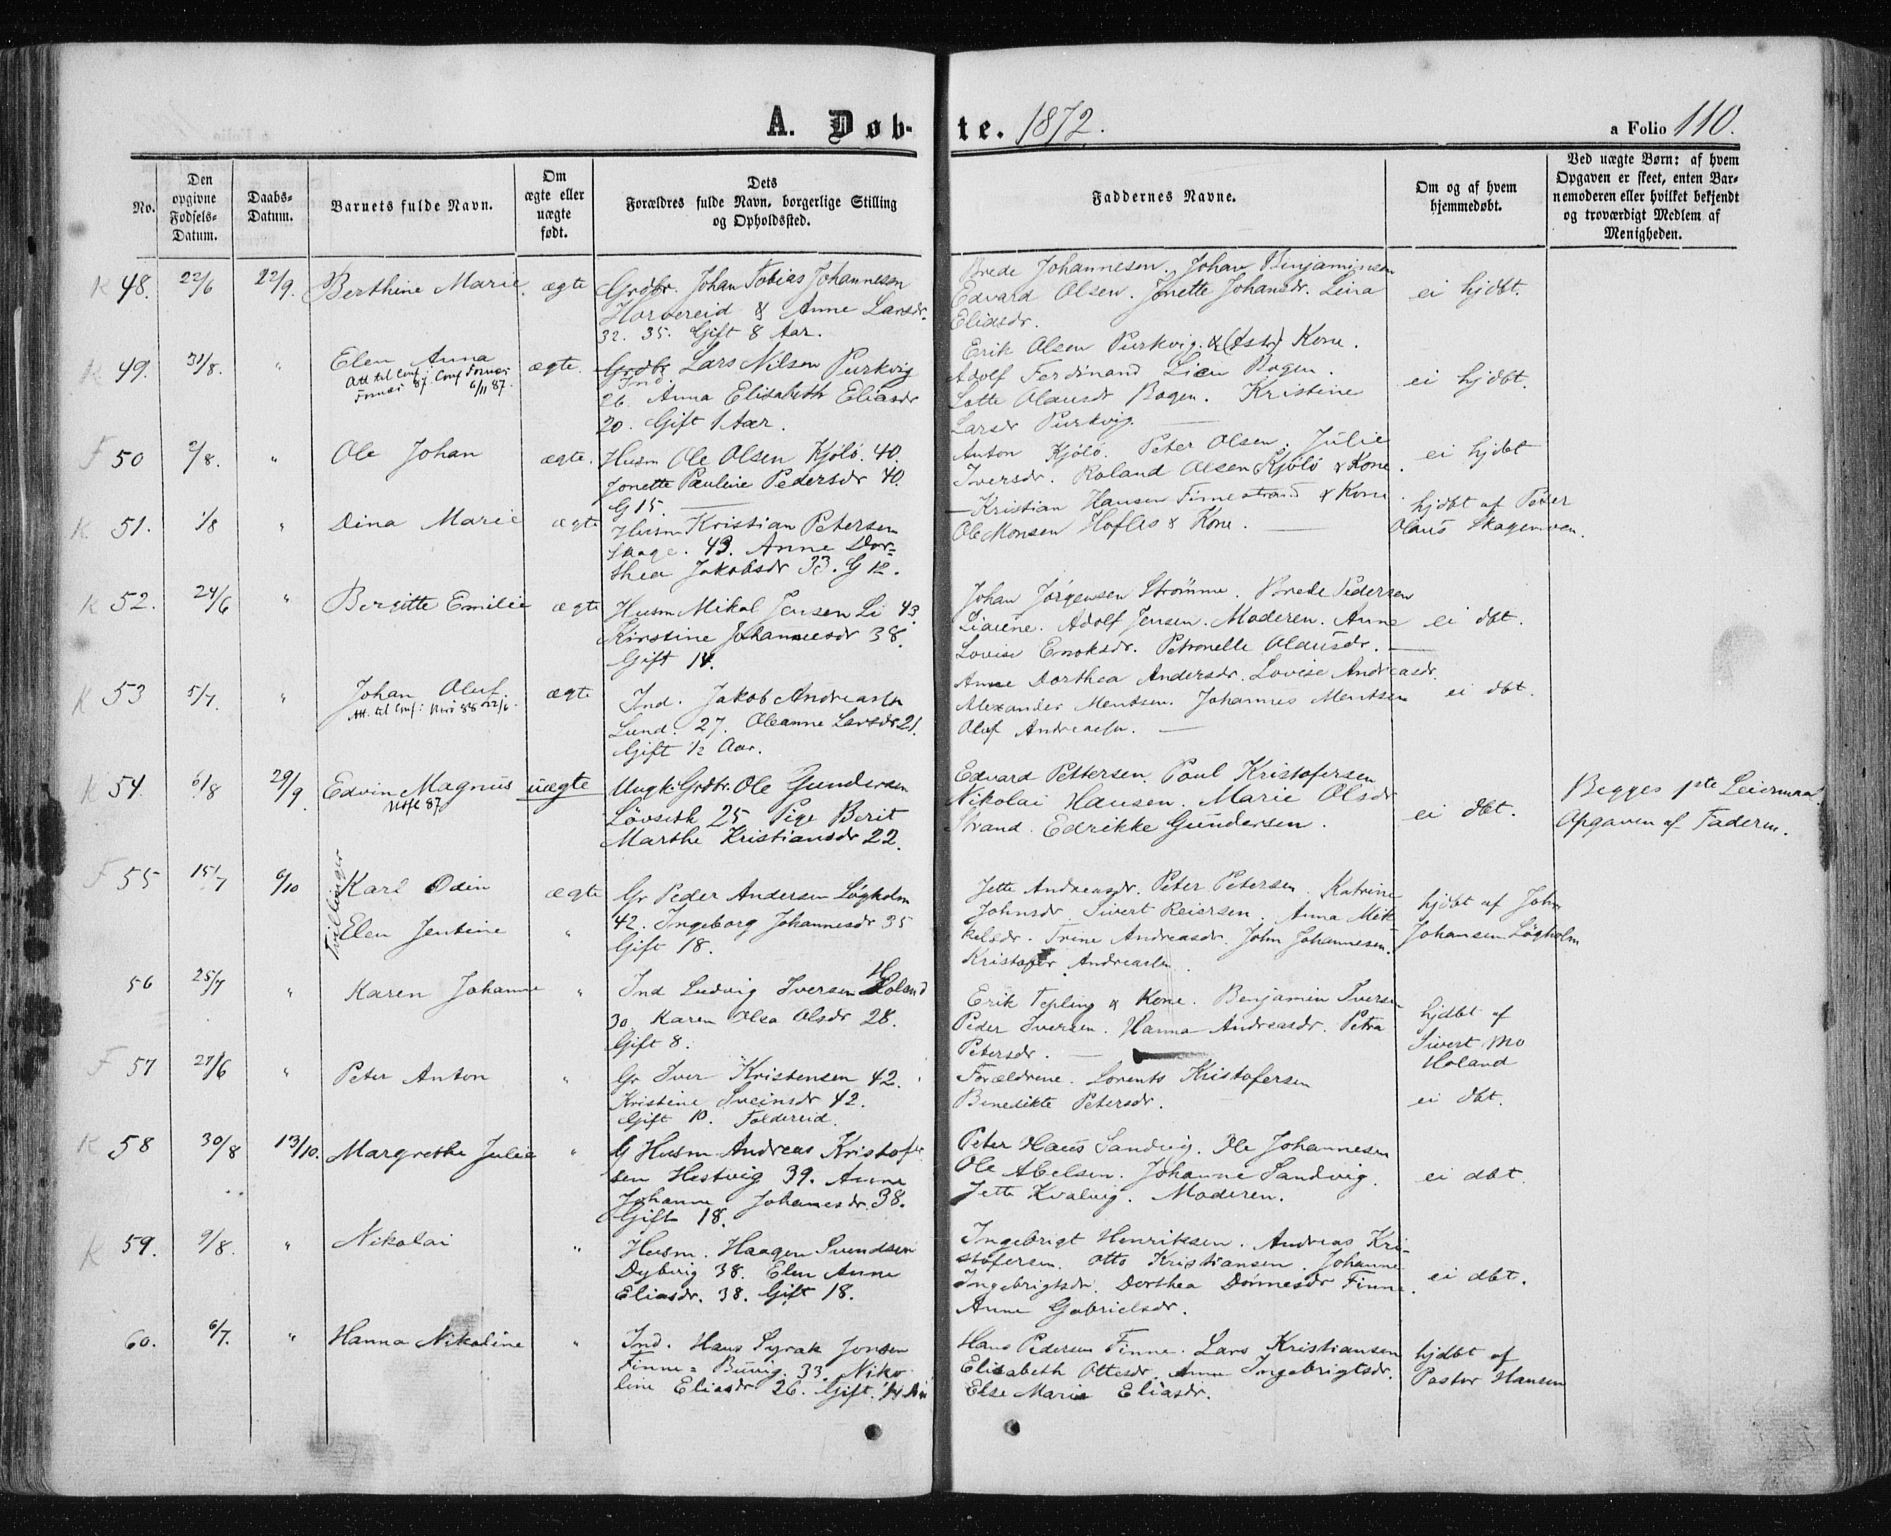 A. Døb-
te. 1872.
a Folio 110.
No.
Den opgivne Fødsels-Datum.
Daabs-Datum.
Barnets fulde Navn.
Om ægte eller uægte født.
Dets
Forældres fulde Navn, borgerlige Stilling
og Opholdssted.
Faddernes Navne.
Om og af hvem
hjemmedøbt.
Ved uægte Børn: af hvem
Opgaven er skeet, enten Bar-
nemoderen eller hvilket bekjendt
og troværdigt Medlem af
Menigheden.
K 48. 22/6 22/9. Berthine Marie. ægte
Grdbr. Johan Tobias Johannesen
Horvereid & Anne Larsdr.
32. 35. Gift 8 Aar.
Brede Johannesen. Johan Benjaminsen
Edvard Olsen. Jonette Johansdr. Lina
Eliasdr.
ei hjdbt.
K 49. 31/8. " Elen Anna ægte.
Att til Conf:
6/11 87.
Grdbr Lars Nilsen Purkvig
Ind.
26. Anna Elisabeth Eliasdr
20. Gift 1 Aar.
Erik Olsen Purkvig. & Kone.
Adolf Ferdinand Lien Bogen.
Lotte Olausdr Bogen. Kristine
Larsdr Purkvig.
ei hjdbt.
F 50 2/8. " Ole Johan ægte.
Husm Ole Olsen Kjølö. 40.
Jonette Pauline Pedersdr 40.
G 15.
Anton Kjölö. Peter Olsen. Julie
Iversdr. Roland Olsen Kjölö & Kone.
ei hjdbt
K 51. 1/8 " Dina Marie ægte
Husm Kristian Petersen
Skage. 43. Anne Dor=
thea Jakobsdr 33. G 12.
Kristian Hansen Finnestrand & Kone.
Ole Monsen Hofles & Kone.
hjdbt af Peter
Olaus Skagemoen.
K 52. 24/6 " Bergitte Emilie ægte
Husm Mikal Jensen Li 43.
Kirstine Johannesdr 38.
Gift 14.
Johan Jørgensen Strömme. Brede Pedersen
Liaiene. Adolf Jensen. Moderen. Anne
Lovise Enoksdr. Petronelle Olausdr.
ei dbt.
K 53 5/7. " Johan Oluf. ægte
Att. til Conf: 88 12/6.
Ind. Jakob Andreassen
Lund. 27. Oleanne Larsdr 21.
Gift 1/2 Aar.
Anne Dorthea Andersdr. Lovise Andreasdr.
Alexander Mentsen. Johannes Mentsen
Oluf Andreassen.
ei dbt.
K 54. 6/8 29/9 Edvin Magnus uægte
87
Ungk. Grdbr. Ole Gundersen
Løvseth 25 Pige Berit
Marthe Kristiansdr 22.
Edvard Pettersen. Paul Kristofersen
Nikolai Hansen. Marie Olsdr
Strand. Edrikke Gundersen.
ei dbt.
Begges 1ste Leiermaal.
Opgaven af Faderen.
Tvillinger
F 55 15/7 6/10 Karl Odin ægte
Elen Jentine "
Gr Peder Andersen Løgholm
42. Ingeborg Johannesdr 35
Gift 18.
Jette Andreasdr. Peter Petersen. Katrine
Johnsdr. Sivert Reiersen. Anna Mik
kelsdr. Trine Andreasdr. John Johannesen.
Kristofer Andreassen.
hjdbt af John
Johansen Løgholm
56 25/7 " Karen Johanne "
Ind Ludvig Iversen Holand
30 Karen Elsa Olsdr 28.
Gift 8.
Erik Tepling & Kone. Benjamin Iversen
Peder Iversen. Hanna Andreasdr. Petra
Petersdr.
hjdbt af
Sivert Mo
Holand
F 57 27/6 " Peter Anton "
Gr Iver Kristensen 42.
Kristine Sveinsdr 42.
Gift 10. Foldereid.
Forældrene. Lorents Kristofersen
Benedikte Petersdr.
ei dbt.
K 58 30/8 13/10. Margrethe Julie "
G Husm Andreas Kristofer
sen Hestvig 39. Anne
Johanne Johannesdr. 38.
Gift 18.
Peter Haus Sandvig. Ole Johannesen
Ole Abelsen. Johanne Sandvig.
Jette Kvalvig. Moderen.
ei dbt.
K 59. 9/8. " Nikolai "
Husm. Haagen Svendsen
Dybvig 38. Elen Anne
Eliasdr. 38. Gift 18.
Ingebrigt Henriksen. Andreas Kri-
stofersen. Otto Kristiansen. Johanne
Ingebrigtsdr. Dorthea Dønnesdr Finne.
Anne Gabrielsdr.
ei dbt.
60. 6/7. " Hanna Nikoline "
Ind. Hans Syrak Jonsen
Finne= 33. Niko
line Eliasdr 26. Gift
Hans Pedersen Finne. Lars Kristiansen
Elisabeth Ottesdr. Anne Ingebrigtsdr.
Else Marie Eliasdr.
hjdbt af
Pastor Hansen